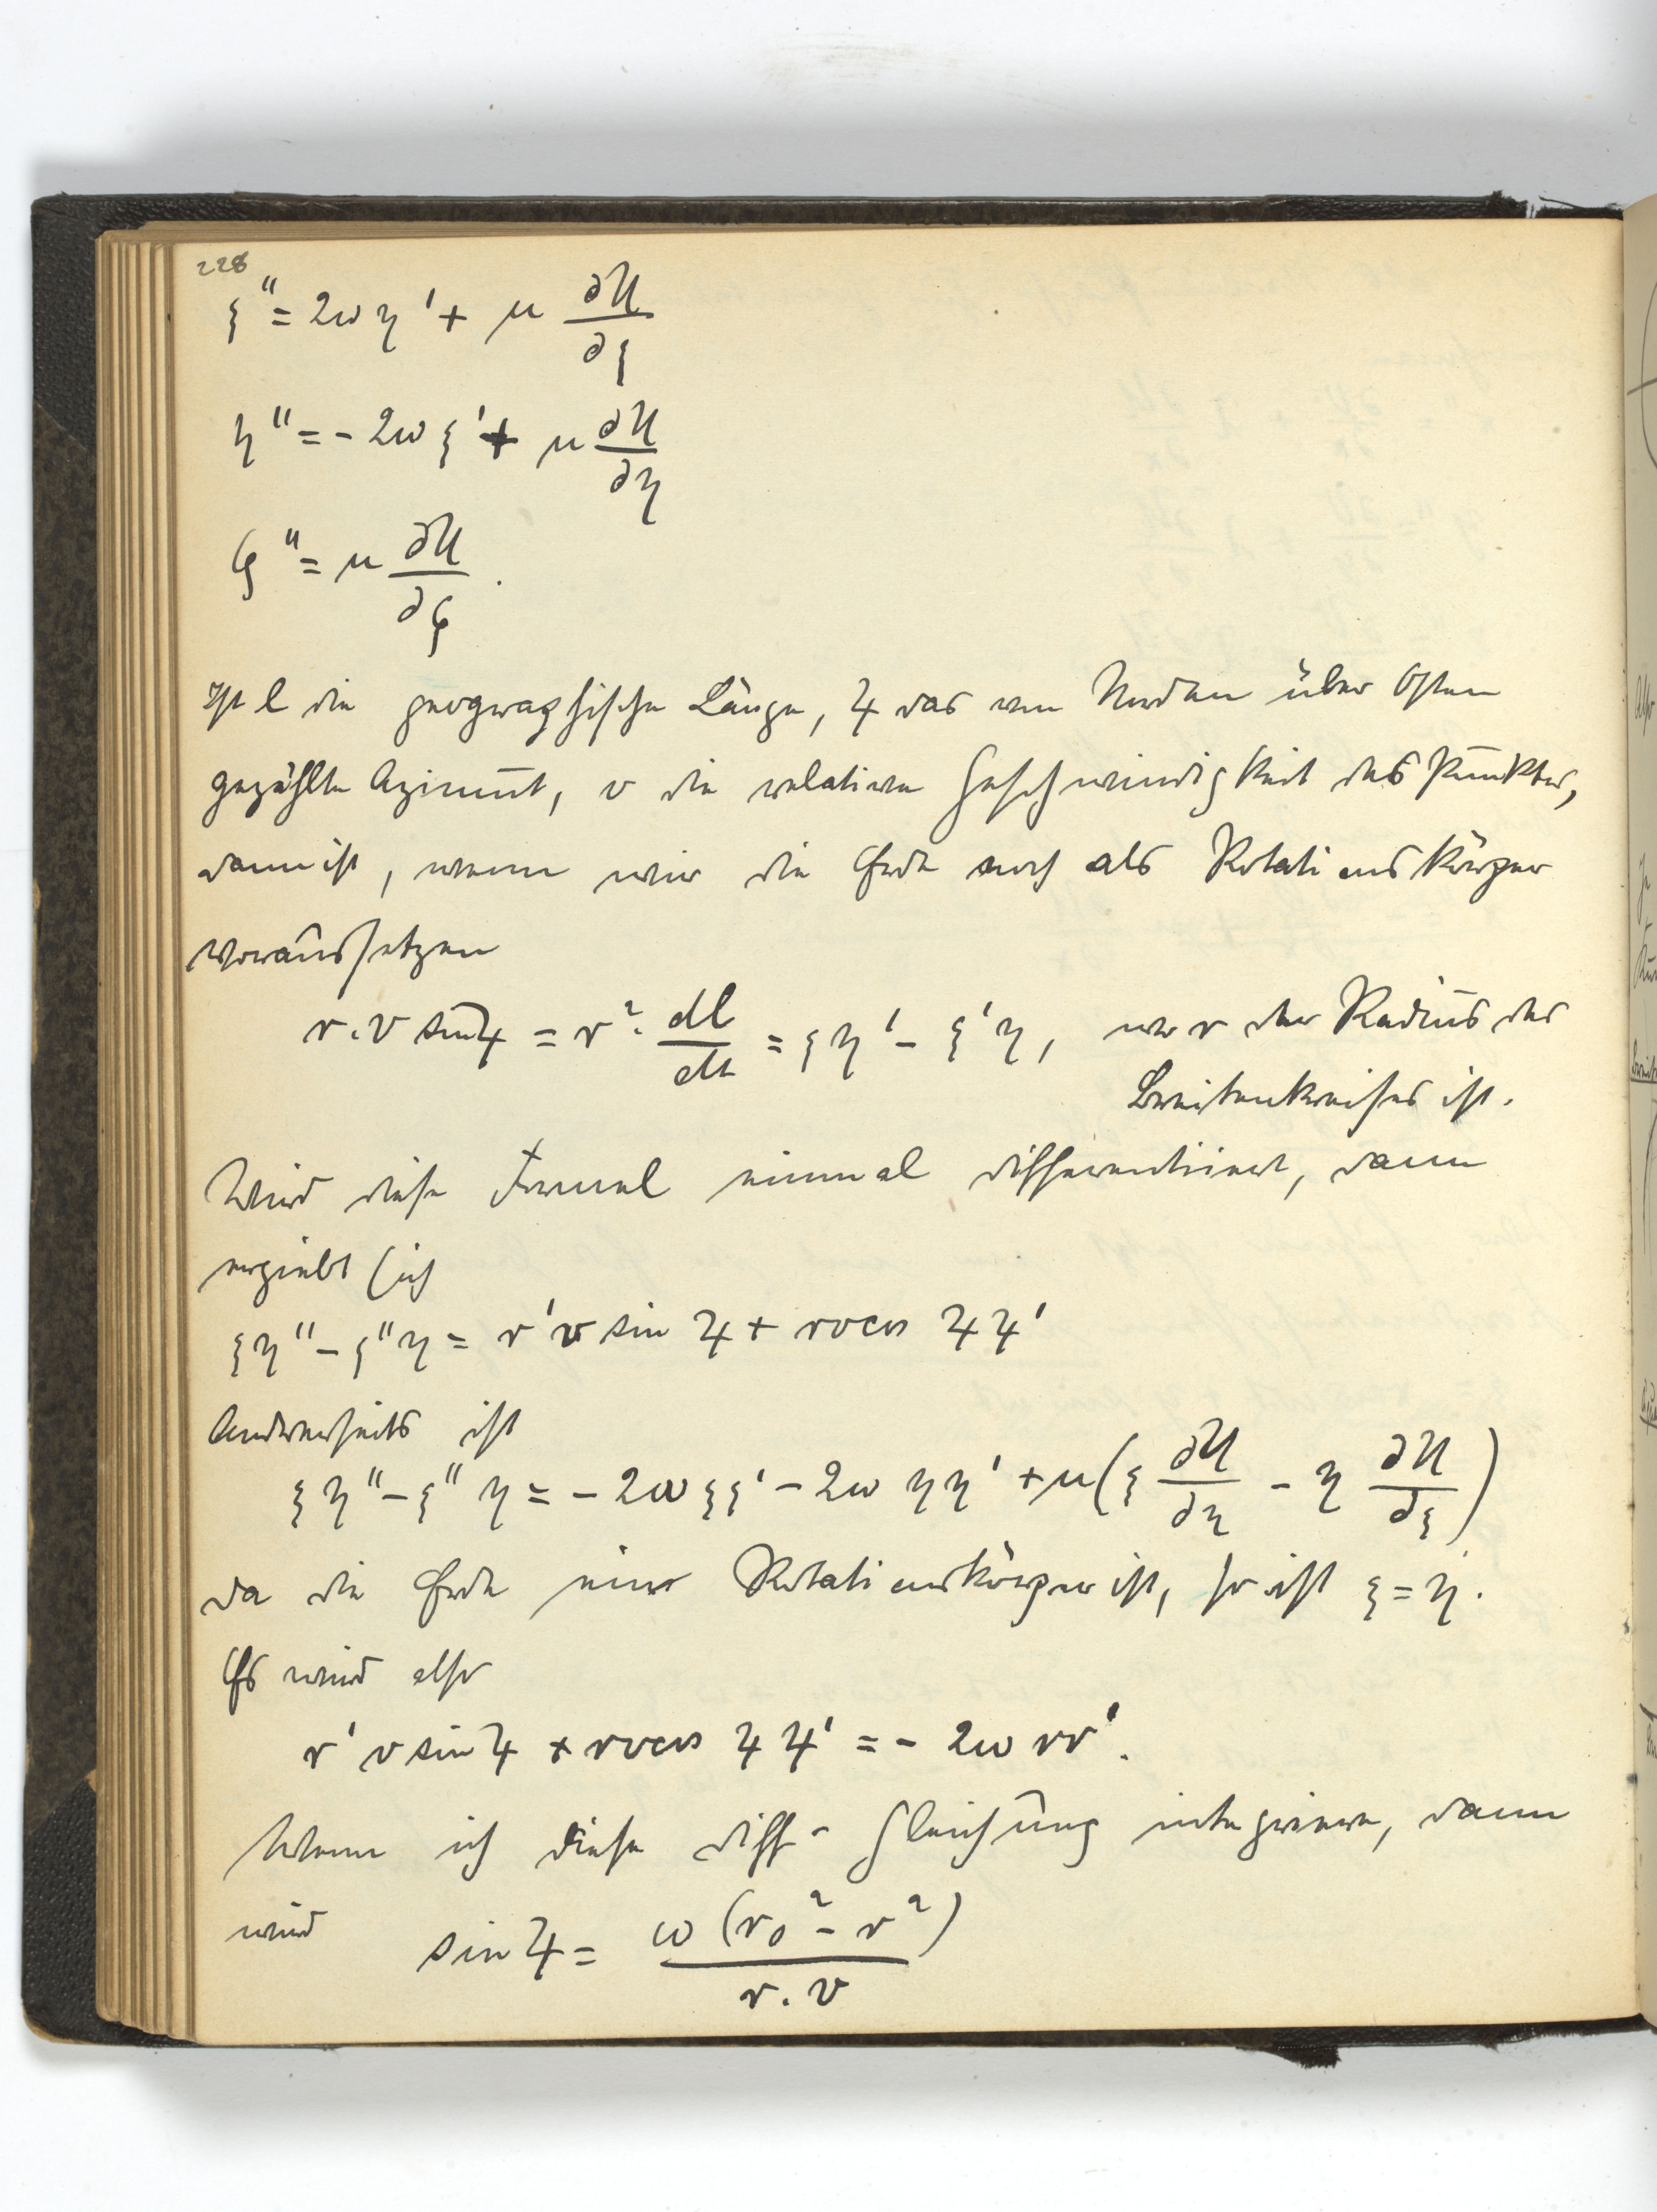 228
ξ'' = 2ω η' + μ ∂U/∂ξ
η'' = - 2ω ξ' + μ ∂U/∂η
ζ'' = μ ∂U/∂ζ .
Ist l die geographische Länge, ψ das von Norden über Osten
gezählte Azimut, v die relative Geschwindigkeit des Punktes,
dann ist, wenn wir die Erde noch als Rotationskörper
voraussetzen
r . v sin ψ = r² . dl/dt = ξ η' - ξ' η , wo r der Radius des
Breitenkreises ist.
Wird diese Formel einmal differentiiert, dann
ergiebt sich
ξ η'' - ξ'' η = r' v sin ψ + r v cos ψ ψ'
Andrerseits ist
ξ η'' - ξ'' η = - 2ω ξ ξ' - 2ω η η' + μ ( ξ ∂U/∂η - η ∂U/∂ξ )
da die Erde ein Rotationskörper ist, so ist ξ = η .
Es wird also
r' v sin ψ + r v cos ψ ψ' = - 2ω r r' .
Wenn ich diese Diff-Gleichung integriere, dann
wird sin ψ = ω (r₀² - r²) / r . v